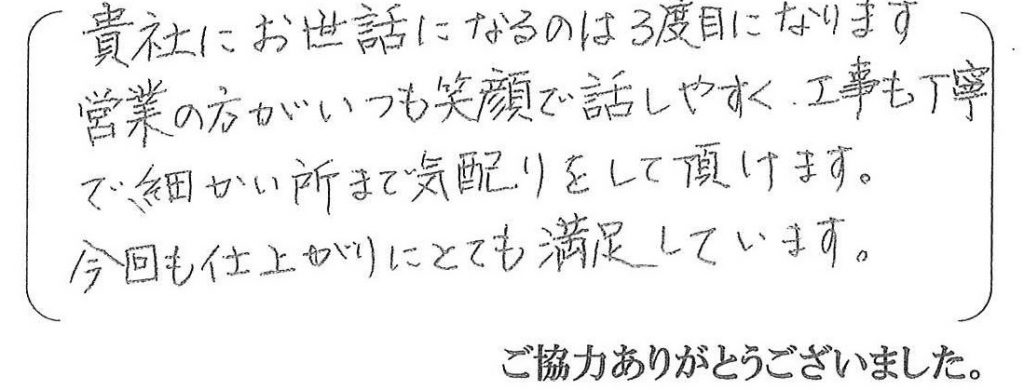 貴社にお世話になるのは3度目になります
営業の方がいつも笑顔で話しやすく、工事も丁寧
で細かい所まで気配りをして頂けます。
今回も仕上がりにとても満足しています。
ご協力ありがとうございました。